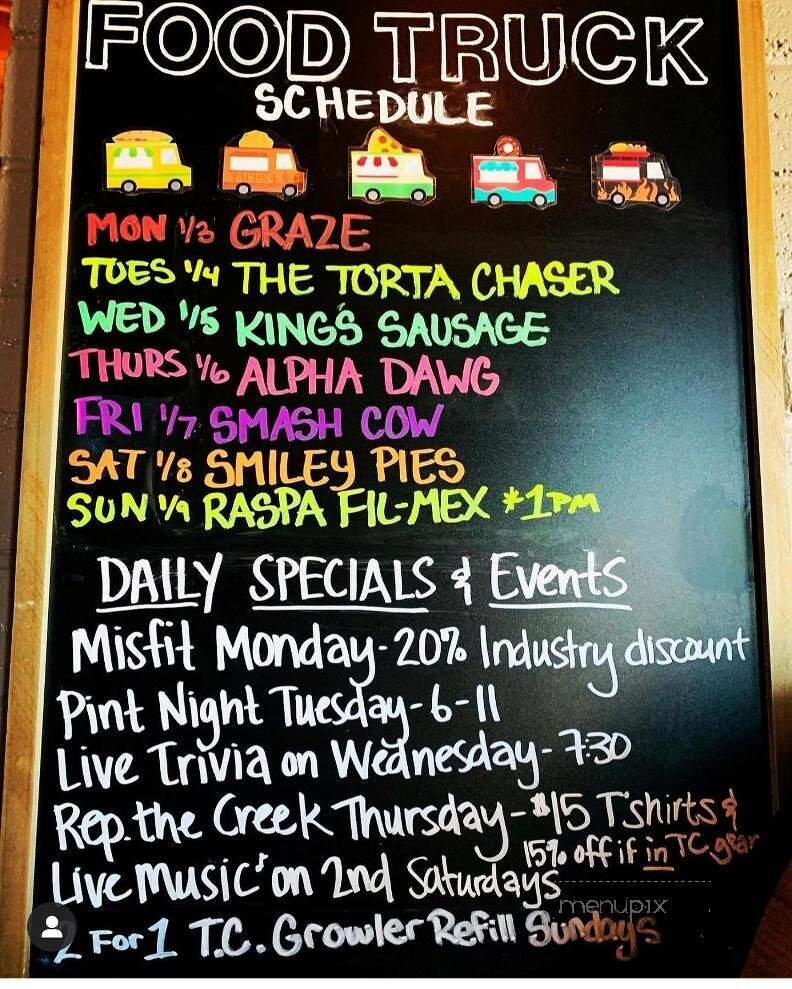 FOOD TRUCK
SCHEDULE
MON 1/3 GRAZE
TUES 1/4 THE TORTA CHASER
WED 1/5 KING'S SAUSAGE
THURS 1/6 ALPHA DAWG
FRI 1/7 SMASH COW
SAT 1/8 SMILEY PIES
SUN 1/9 RASPA FIL-MEX *1PM
DAILY SPECIALS & Events
Misfit Monday-20% Industry discount
Pint Night Tuesday-6-11
Live Trivia on Wednesday-7:30
Rep. the Creek Thursday-$15 T'shirts &
15% off if in TC gear
Live music on 2nd Saturdays
menupix
2 For 1 T.C. Growler Refill Sundays